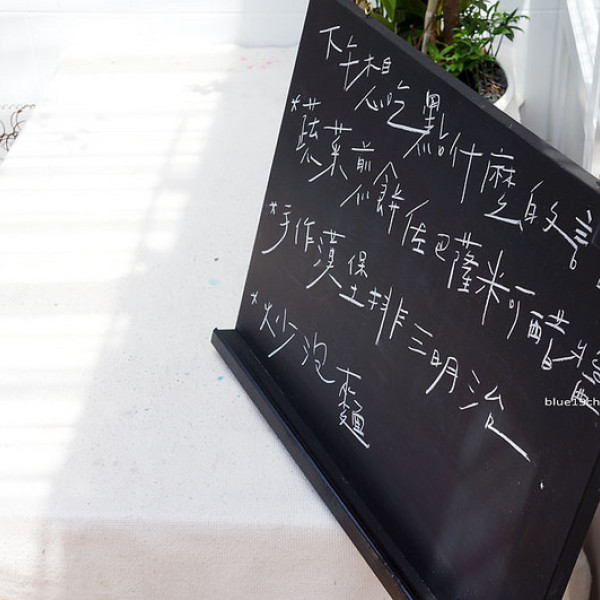 下午想吃點什麼的話
*蔬菜煎餅佐巴薩米可醋醬
*手作漢堡排三明治
*炒泡麵
blue15ch